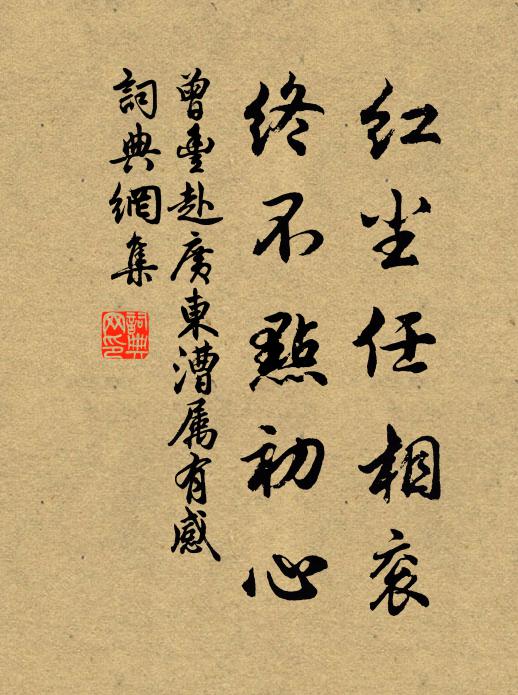 红尘任相衮
终不點初心
曾豐赴廣東漕属有感
詞典網集
詞典网印